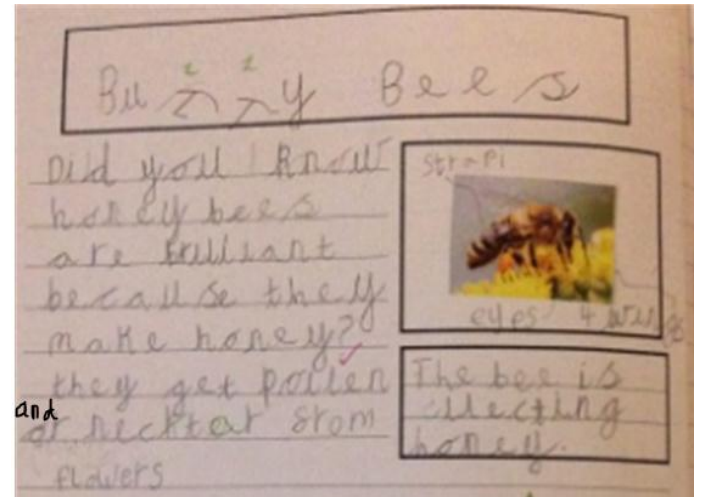 Buzzy Bees
Did you know
honey bees
are brilliant
because they
make honey?
they get pollen
and
or necktar from
flowers
strapi
eyes 4 wings
The bee is
cllecting
honey.